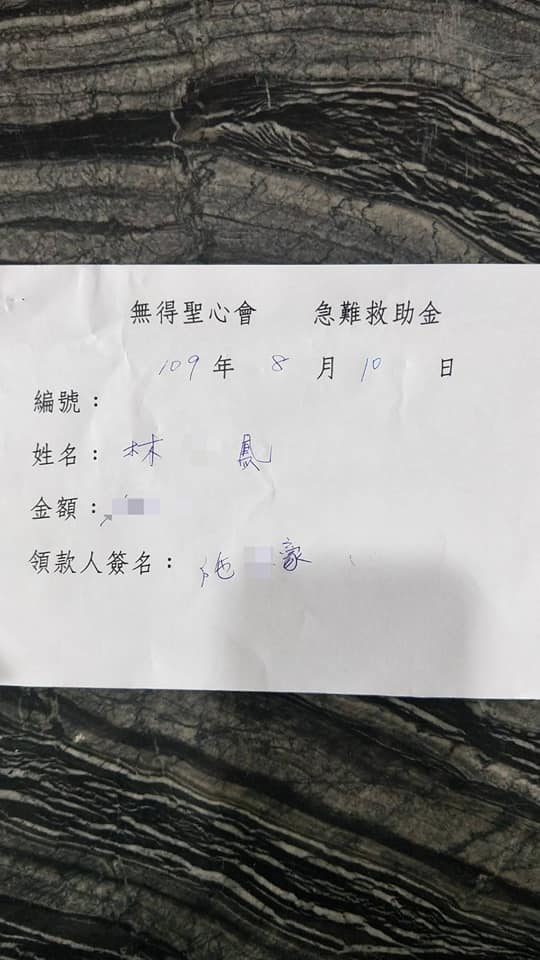 無得聖心會 急難救助金
109年 8月10 日
編號：
姓名：林 鳳
金額：
領款人簽名：施 豪